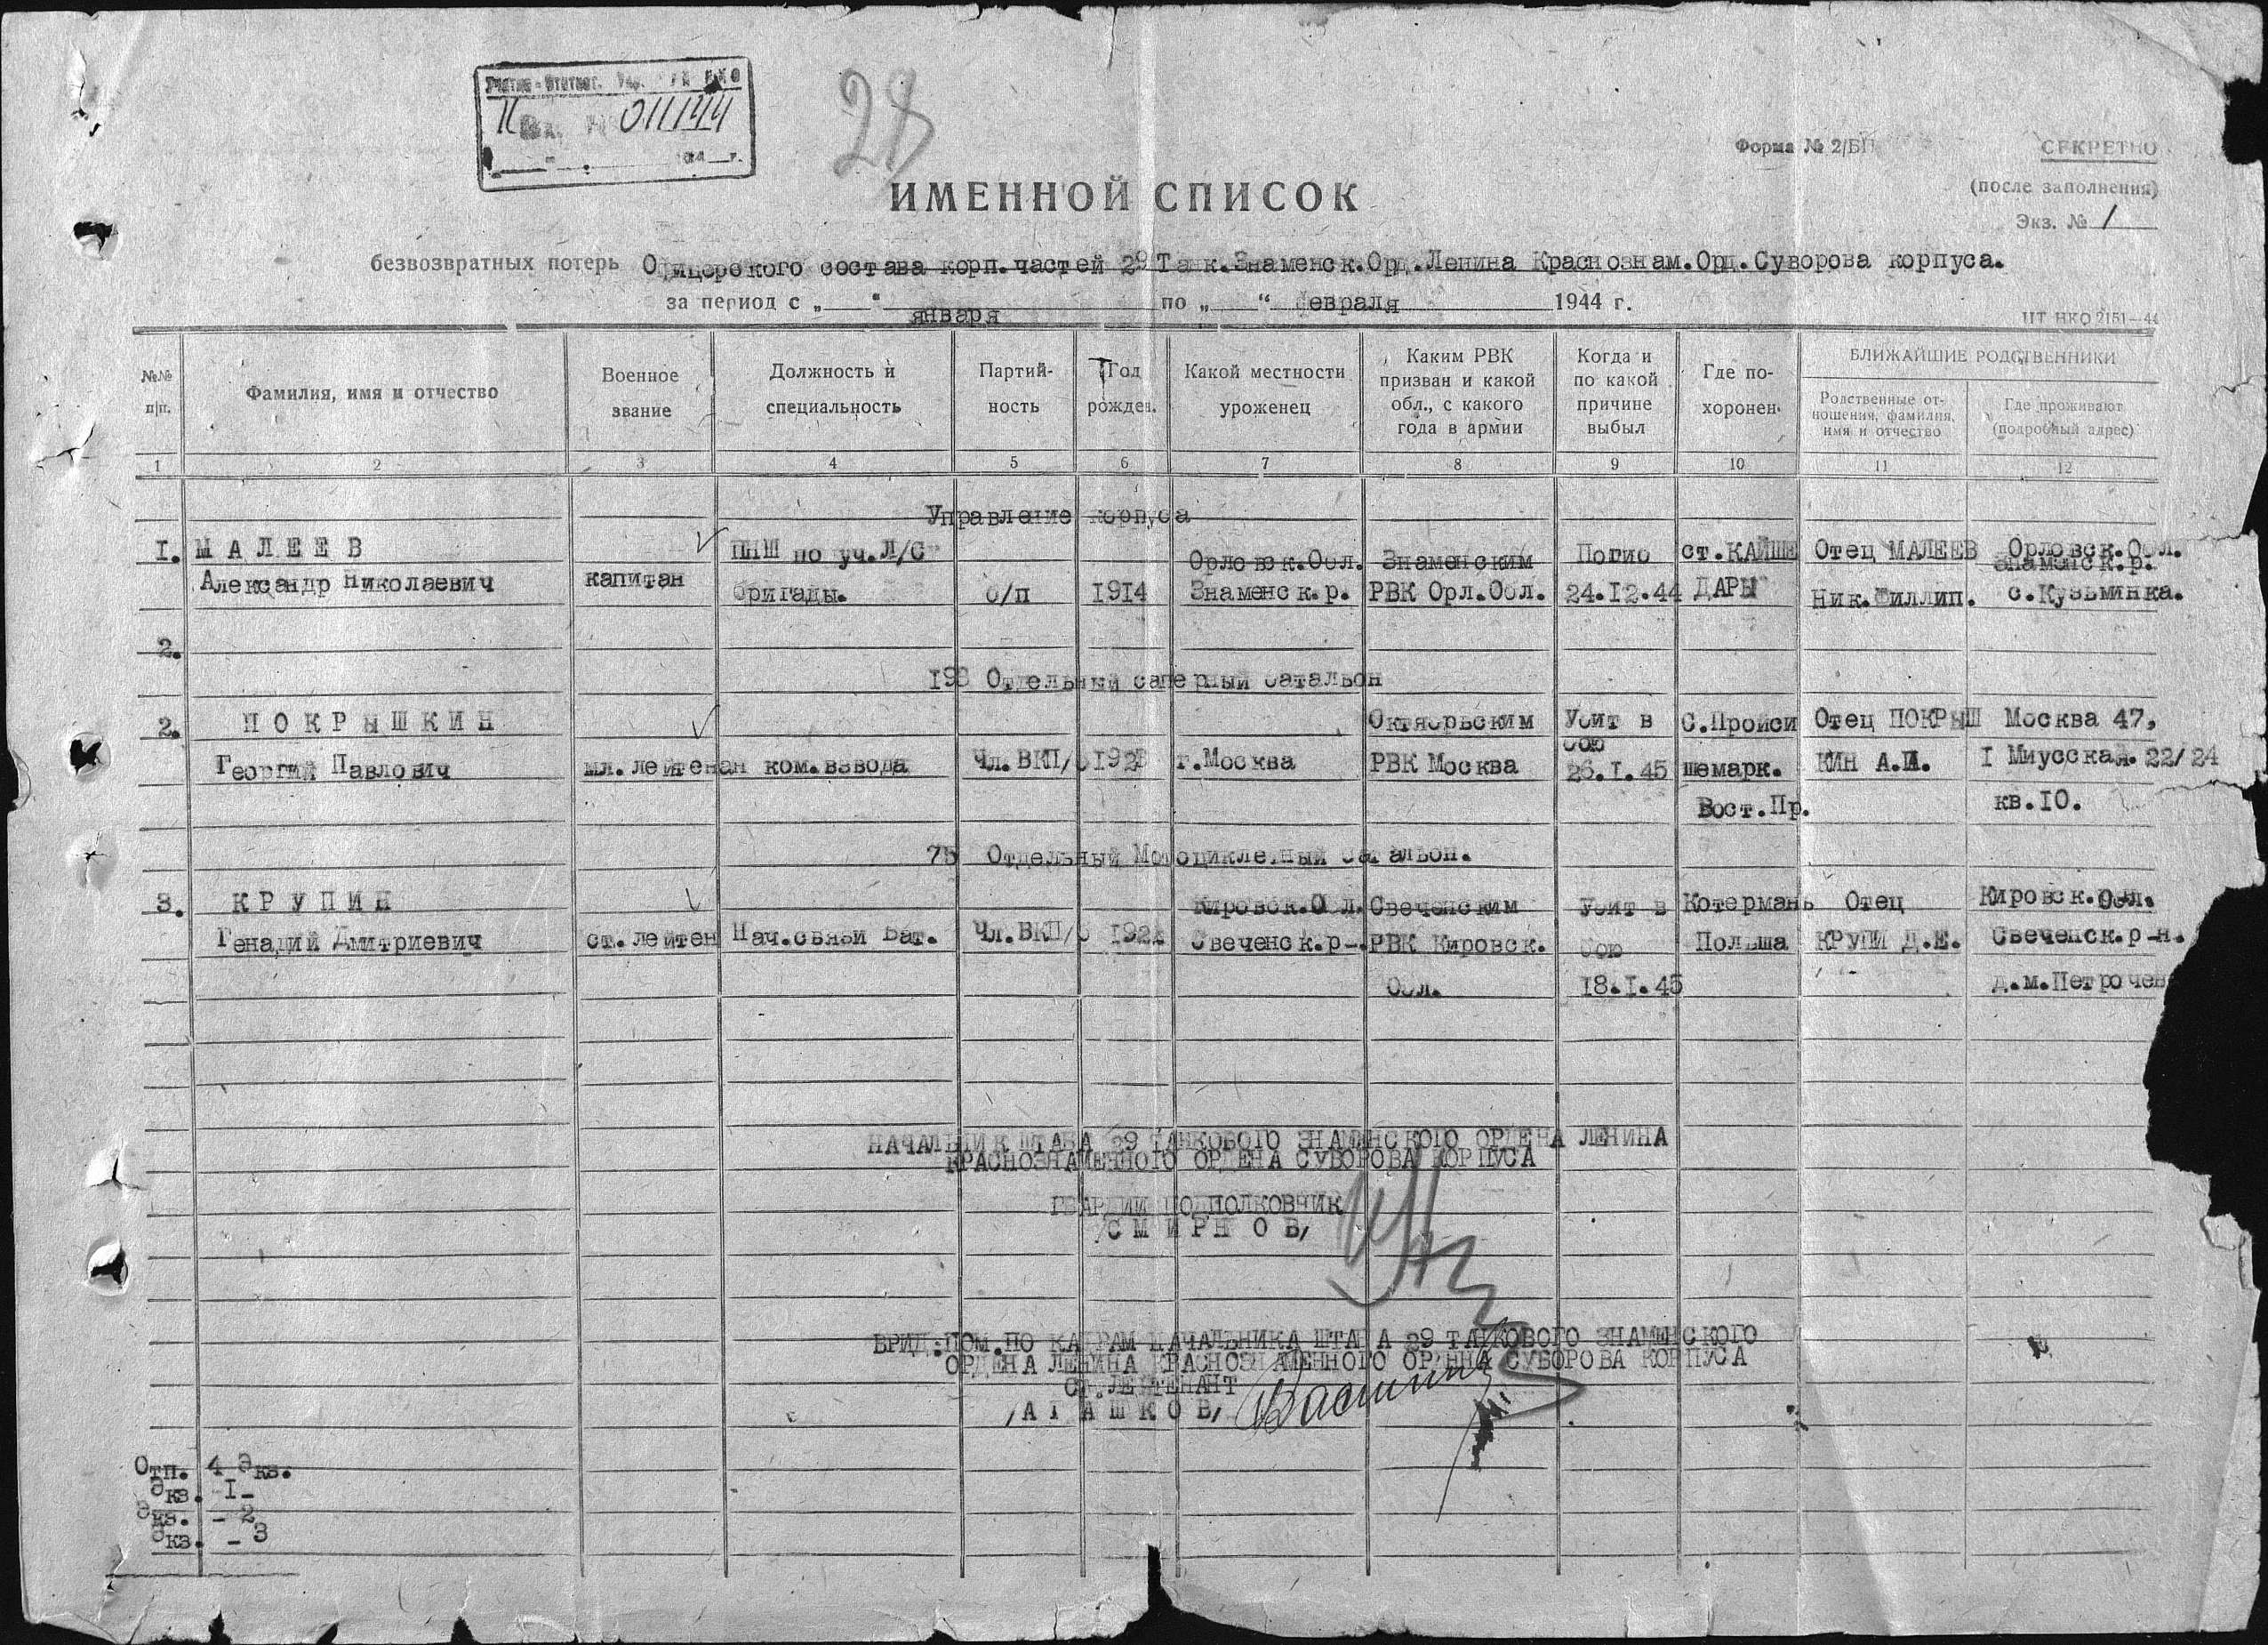 011144
28
Форма № 2/БП
СЕКРЕТНО
(после заполнения)
Экз. № 1
ИМЕННОЙ СПИСОК
безвозвратных потерь Офицерского состава корп.частей 29 Танк.Знаменск.Орд.Ленина Краснознам.Орд.Суворова корпуса.
за период с „ “ января по „ “ февраля 1944 г.
ЦТ НКО 2151—44
№№ п/п.
Фамилия, имя и отчество
Военное звание
Должность и специальность
Партий-ность
Год рожден.
Какой местности уроженец
Каким РВК призван и какой обл., с какого года в армии
Когда и по какой причине выбыл
Где по-хоронен
БЛИЖАЙШИЕ РОДСТВЕННИКИ
Родственные от-ношения, фамилия, имя и отчество
Где проживают (подробный адрес)
1 2 3 4 5 6 7 8 9 10 11 12
Управление корпуса
I. МАЛЕЕВ ПНШ по уч.Л/С Орловск.Обл. Знаменским Погиб ст.КАЙШЕ Отец МАЛЕЕВ Орловск.Обл.
Знаменск.р.
Александр Николаевич капитан бригады. б/п 1914 Знаменск.р. РВК Орл.Обл. 24.12.44 ДАРЫ Ник.Филлип. с.Кузьминка.
2.
Отдельный саперный батальон
2. ПОКРЫШКИН Октябрьским Убит в С.Пройси Отец ПОКРЫШ Москва 47,
бою
Георгий Павлович мл.лейтенан ком.взвода Чл.ВКП/б г.Москва РВК Москва 26.I.45 шемарк. КИН А.П. I Миусская. 22/24
Вост.Пр. кв.10.
75 Отдельный Мотоциклетный батальон.
3. КРУПИН Кировск.Обл. Свеченским Убит в Котермань Отец Кировск.Обл.
Генадий Дмитриевич ст.лейтен Нач.связи Бат. Чл.ВКП/б Свеченск.р-. РВК Кировск. бою Польша КРУПИ Д.Е. Свеченск.р-н.
Обл. 18.I.45 д.м.Петрочен
НАЧАЛЬНИК ШТАБА 29 ТАНКОВОГО ЗНАМЕНСКОГО ОРДЕНА ЛЕНИНА
КРАСНОЗНАМЕННОГО ОРДЕНА СУВОРОВА КОРПУСА
ГВАРДИИ ПОДПОЛКОВЧИК
/СМИРНОВ/
ВРИД.ПОМ.ПО КАДРАМ НАЧАЛЬНИКА ШТАБА 29 ТАНКОВОГО ЗНАМЕНСКОГО
ОРДЕНА ЛЕНИНА КРАСНОЗНАМЕННОГО ОРДЕНА СУВОРОВА КОРПУСА
СТ.ЛЕЙТЕНАНТ
/АГАШКОВ/
Отп. 4 Экз.
Экз. I-
Экз. - 2
Экз. - 3